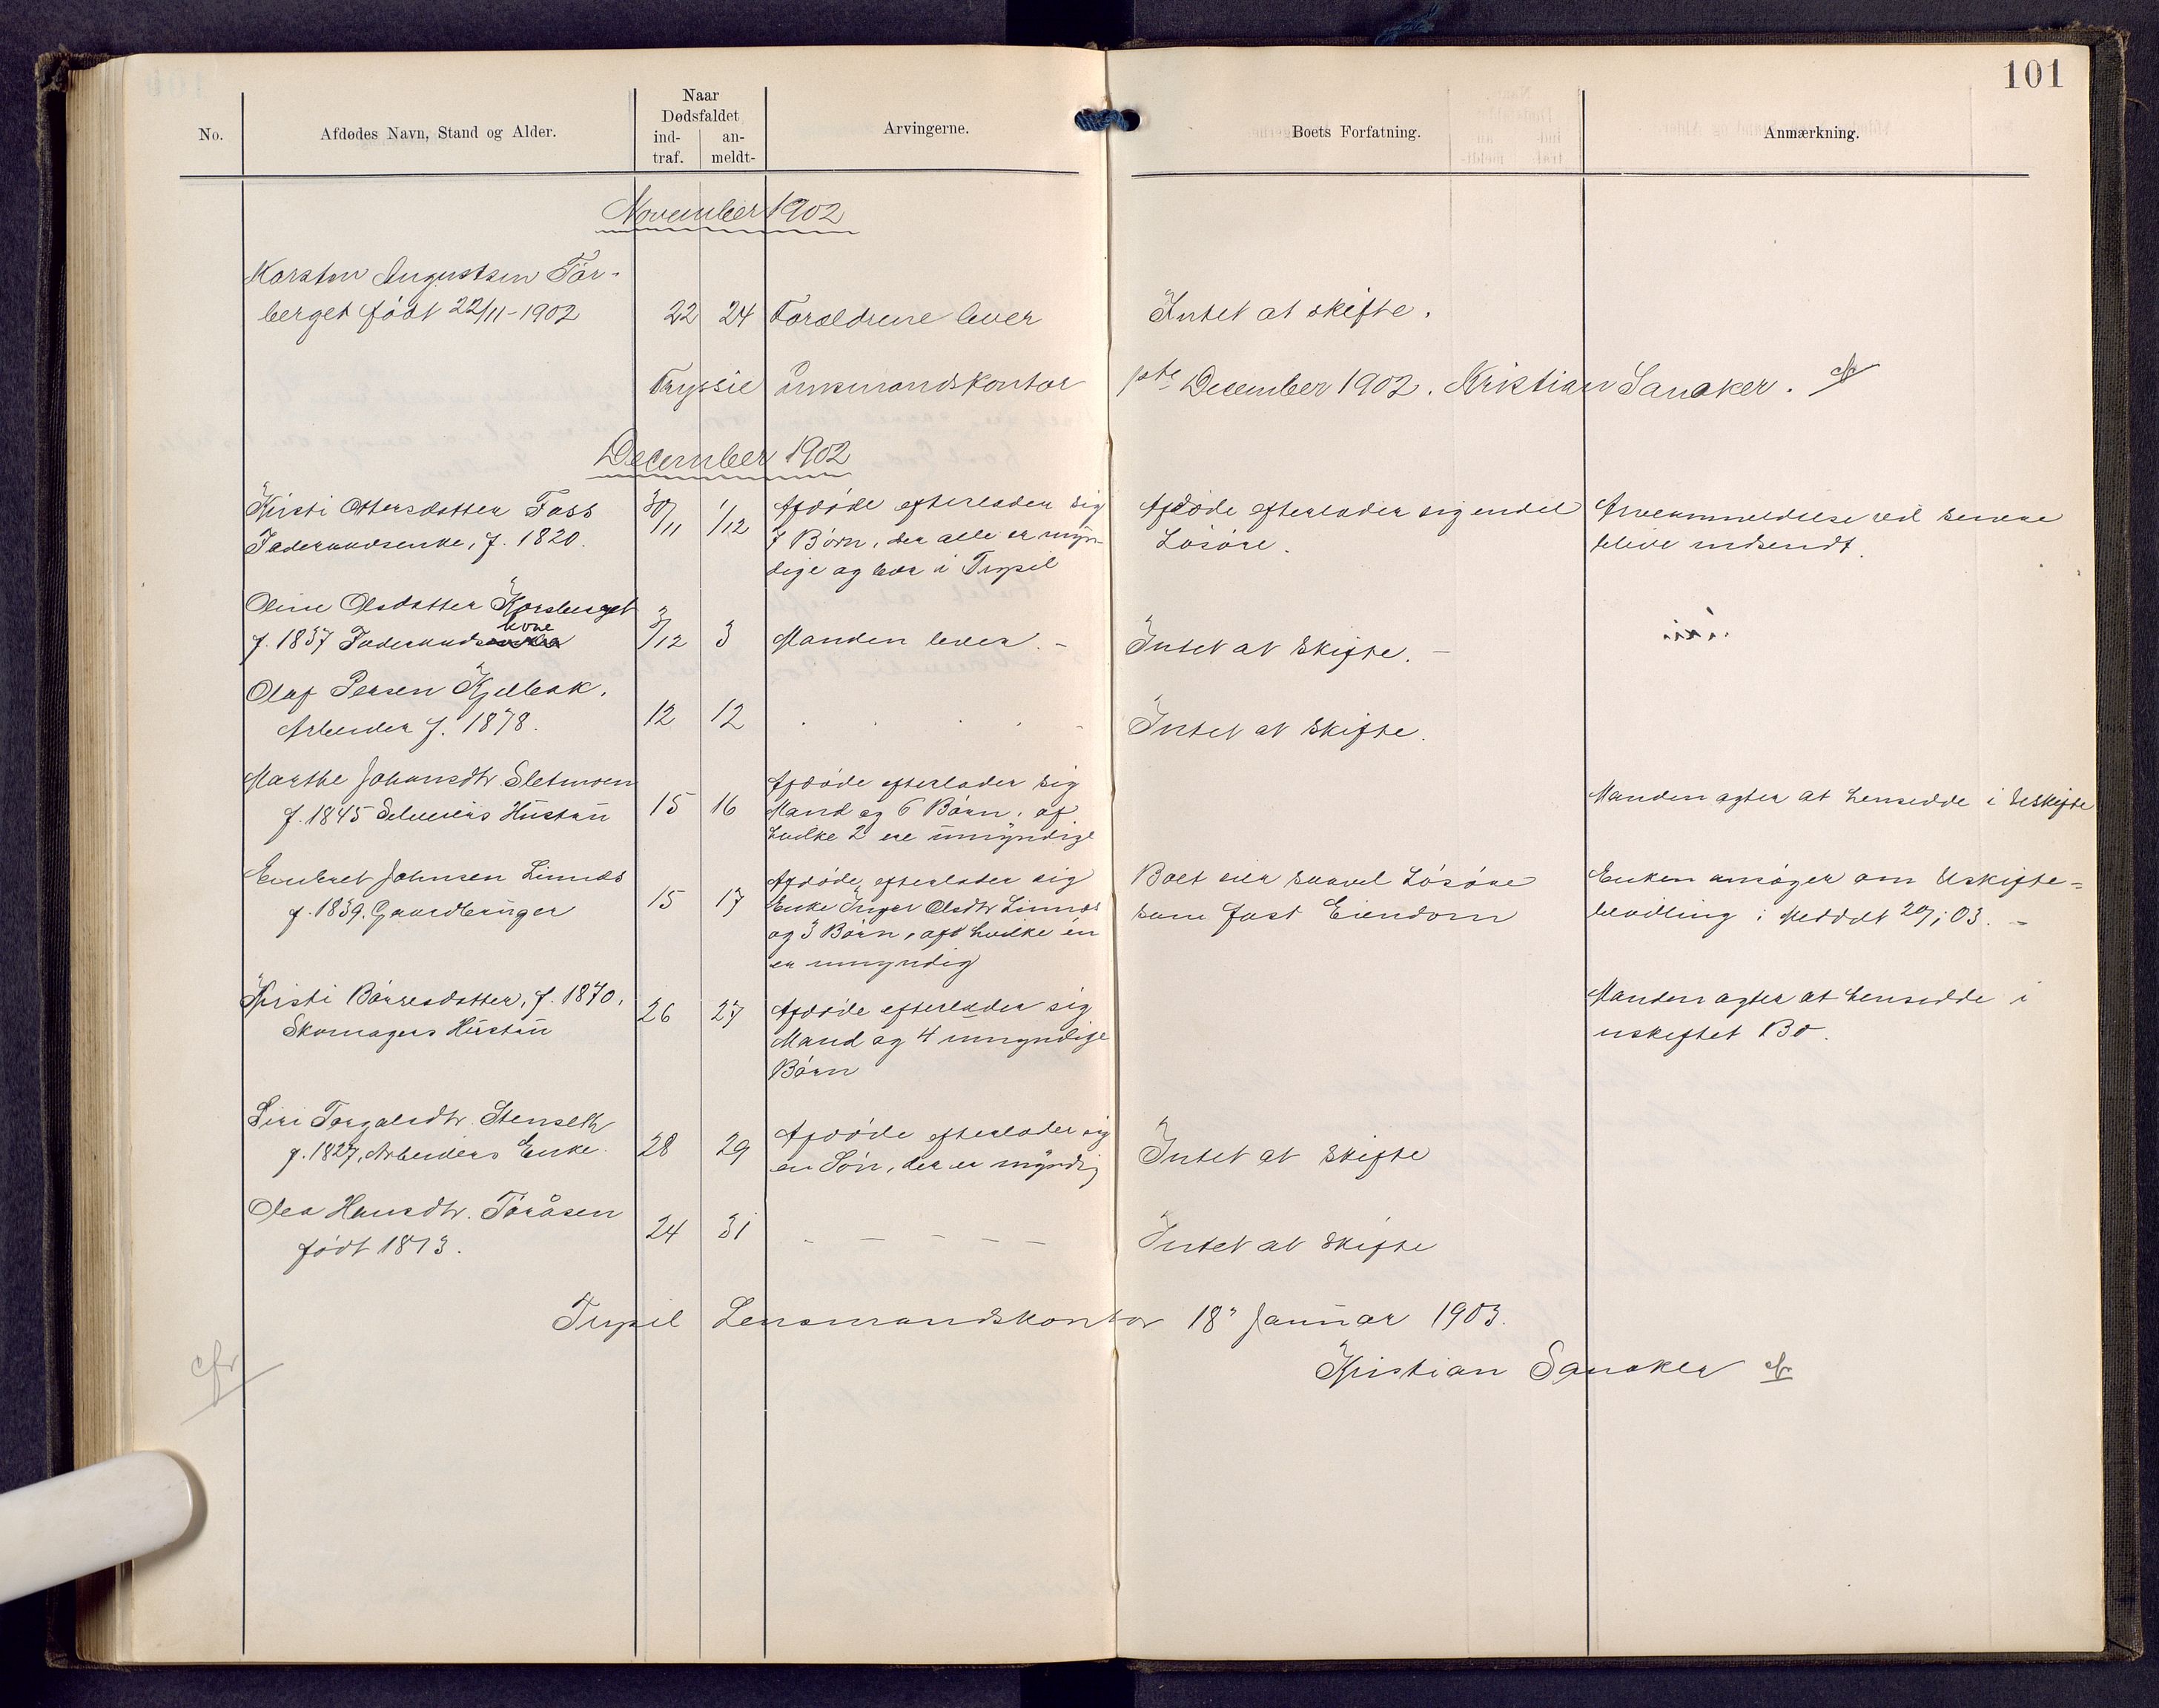 101
No.
Afdødes Navn, Stand og Alder.
Naar
Dødsfaldet
ind-
traf.
an-
meldt-
Arvingerne.
Boets Forfatning.
Anmærkning.
November 1902
Karsten Augustsen Tør-
berget født 22/11-1902
22 24 Forældrene lever
Intet at skifte.
Trysil Lensmandskontor 1ste December 1902. Kristian Sanaker.
December 1902
Kirsti Ottersdatter Foss
Inderrudsenke, f. 1820.
30/11 1/12
Afdøde efterlader sig
7 Børn, der alle er myn-
dige og bor i Trysil
Afdøde efterlader sig endel
Løsøre.
Arveanmeldelse vil senere
blive indsendt.
Oline Olsdatter Korsberget
f. 1837 Inderrudskone
3/12 3 Manden lever. -
Intet at skifte. -
Olaf Persen Kjelbak.
Arbeider f. 1878.
12 12
Intet at skifte.
Marthe Johansdtr. Sletmoen
f. 1845 Selveiers Hustru
15 16
Afdøde efterlader sig
Mand og 6 Børn, af
hvilke 2 ere umyndige
Manden agter at hensidde i Uskifte
Embret Johnsen Linnes
f. 1839. Gaardbruger
15 17
Afdøde efterlader sig
Enke Inger Olsdtr Linnes
og 3 Børn, af hvilke én
er umyndig
Boet eier saavel Løsøre
som fast Eiendom
Enken ansøger om Uskifte-
bevilling; Meddelt 29/1 03. -
Kirsti Børresdatter, f. 1870.
Skomagers Hustru
26 27
Afdøde efterlader sig
Mand og 4 umyndige
Børn
Manden agter at hensidde i
uskiftet Bo.
Siri Torgalsdtr. Stenseth
f. 1827, Arbeiders Enke.
28 29
Afdøde efterlader sig
en Søn, der er myndig
Intet at skifte
Olea Hansdtr. Toråsen
født 1873.
24 31 - - - - -
Intet at skifte
Trysil Lensmandskontor 18' Januar 1903.
Kristian Sanaker
cfr